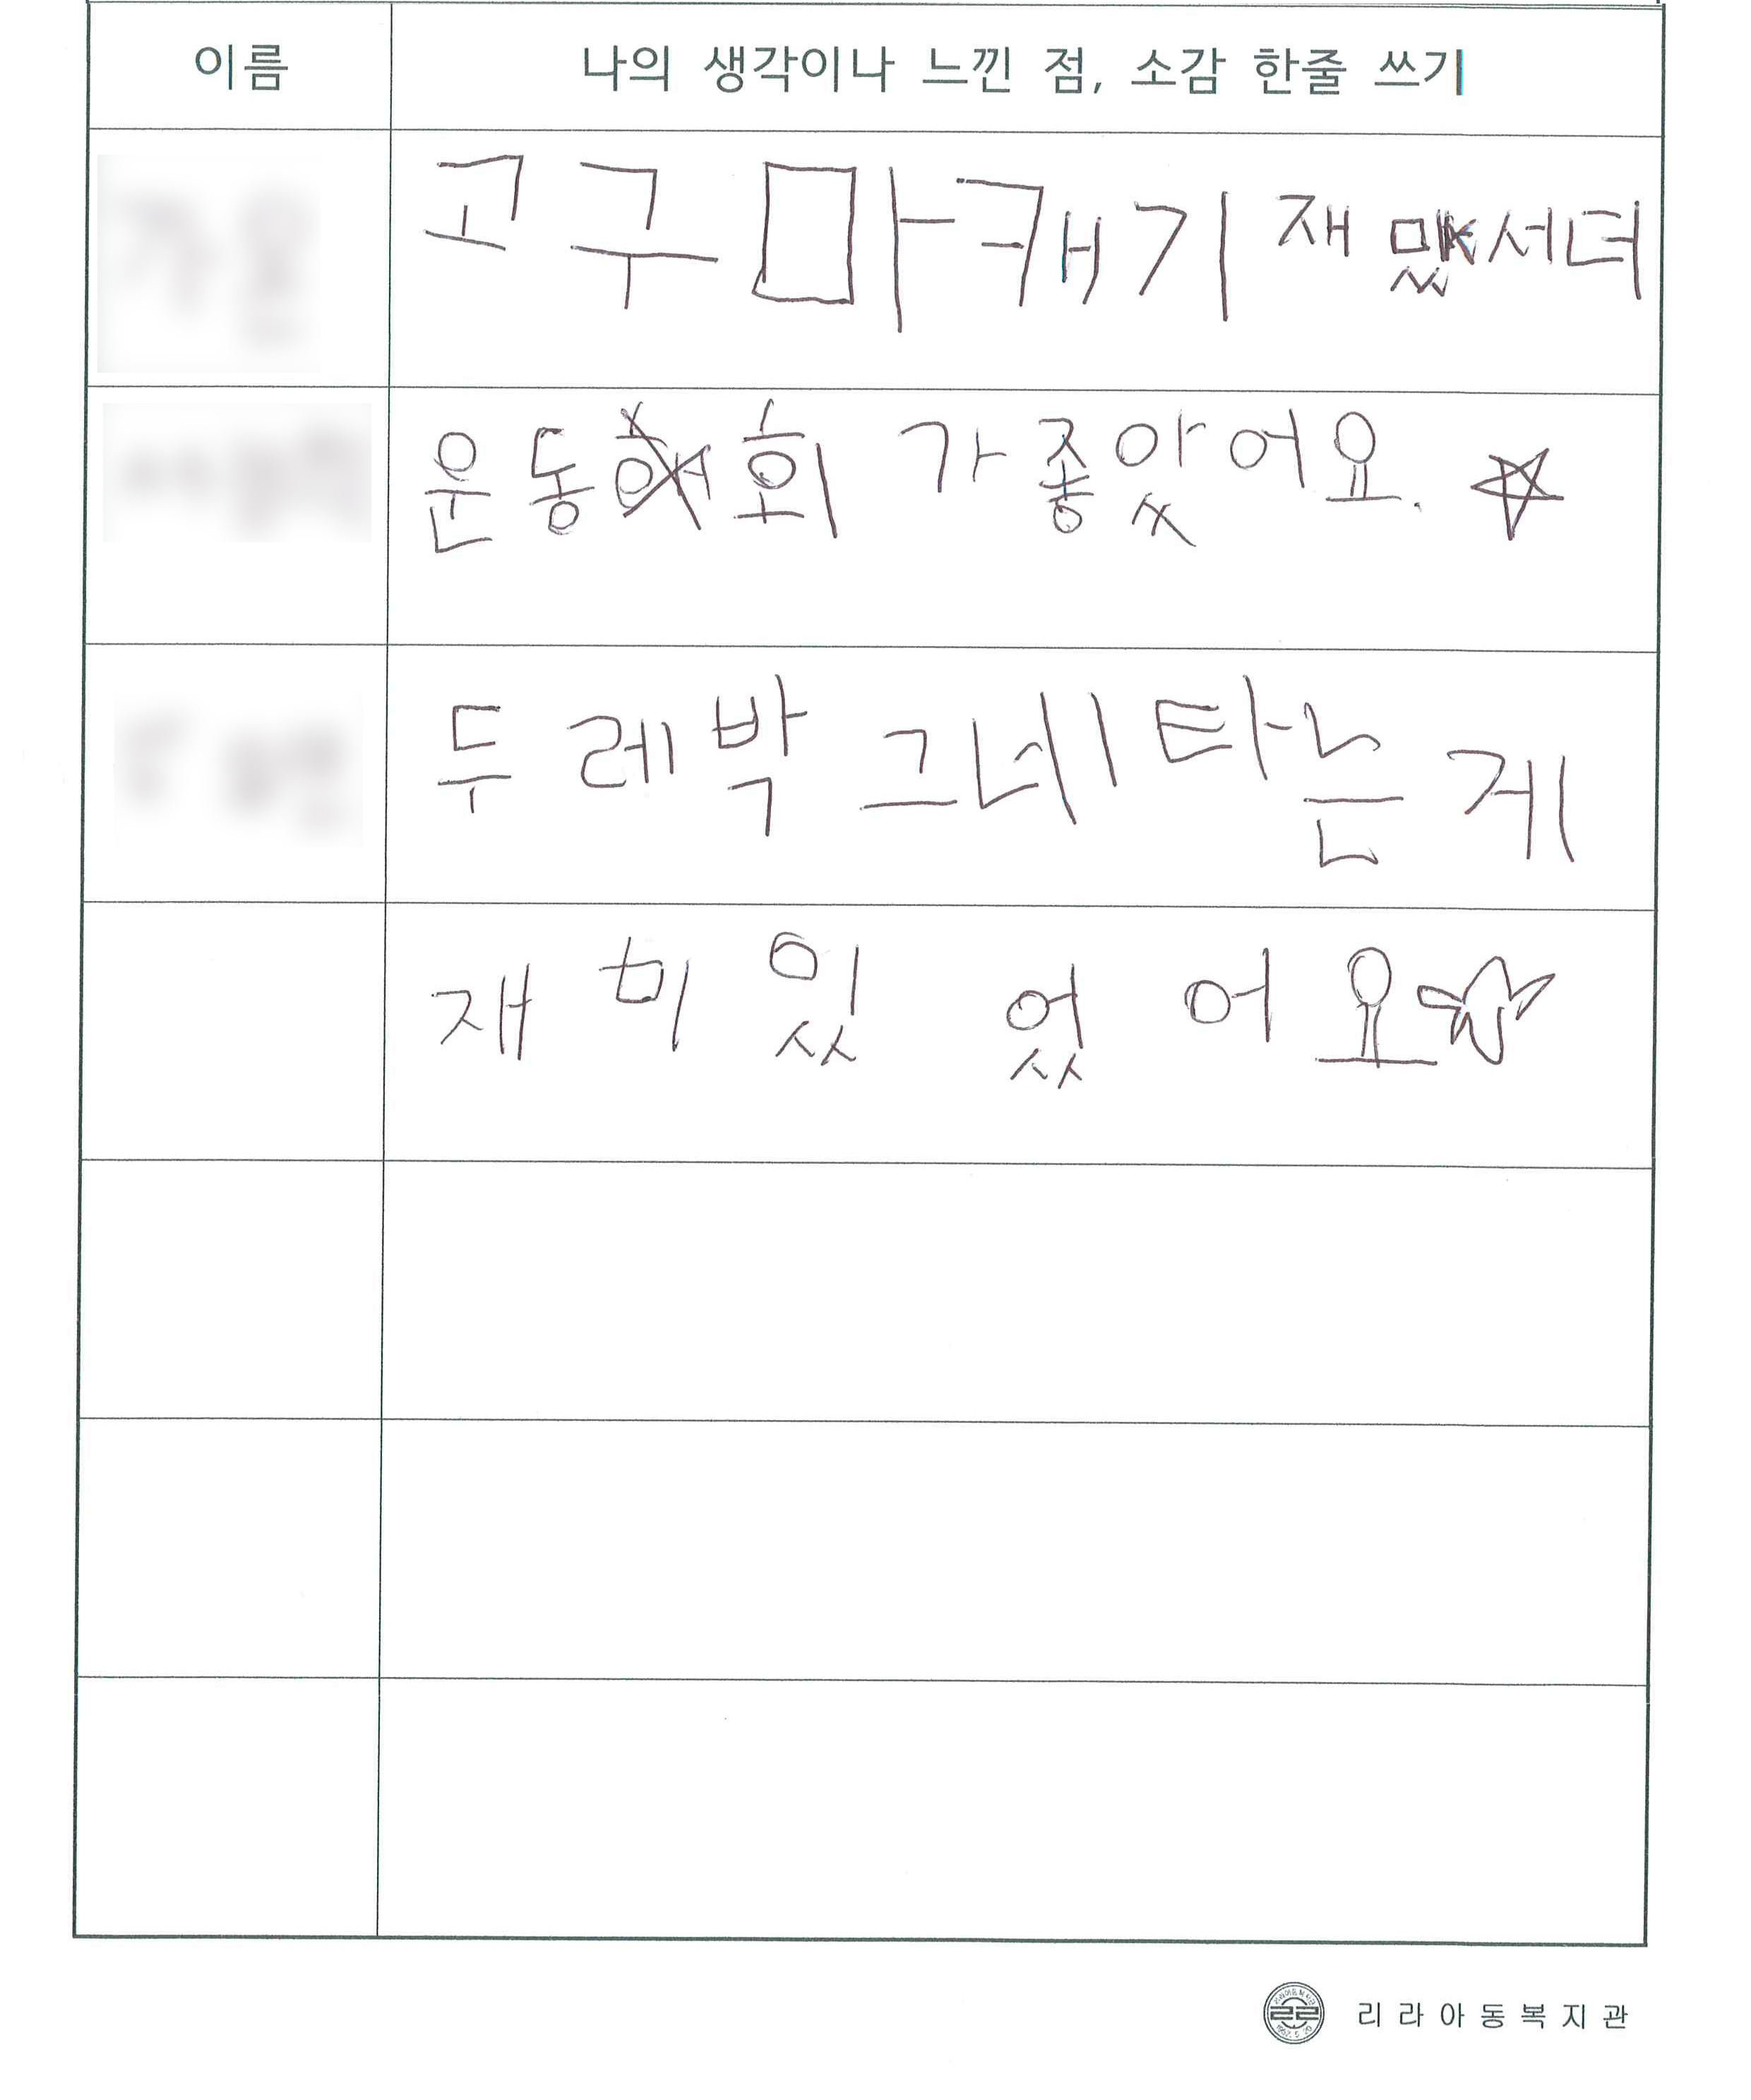 이름 나의 생각이나 느낀 점, 소감 한줄 쓰기
고구마캐기 재밌서더
운동회가 좋았어요.
두레박 그네 타는 게
재미있었어요
리라아동복지관